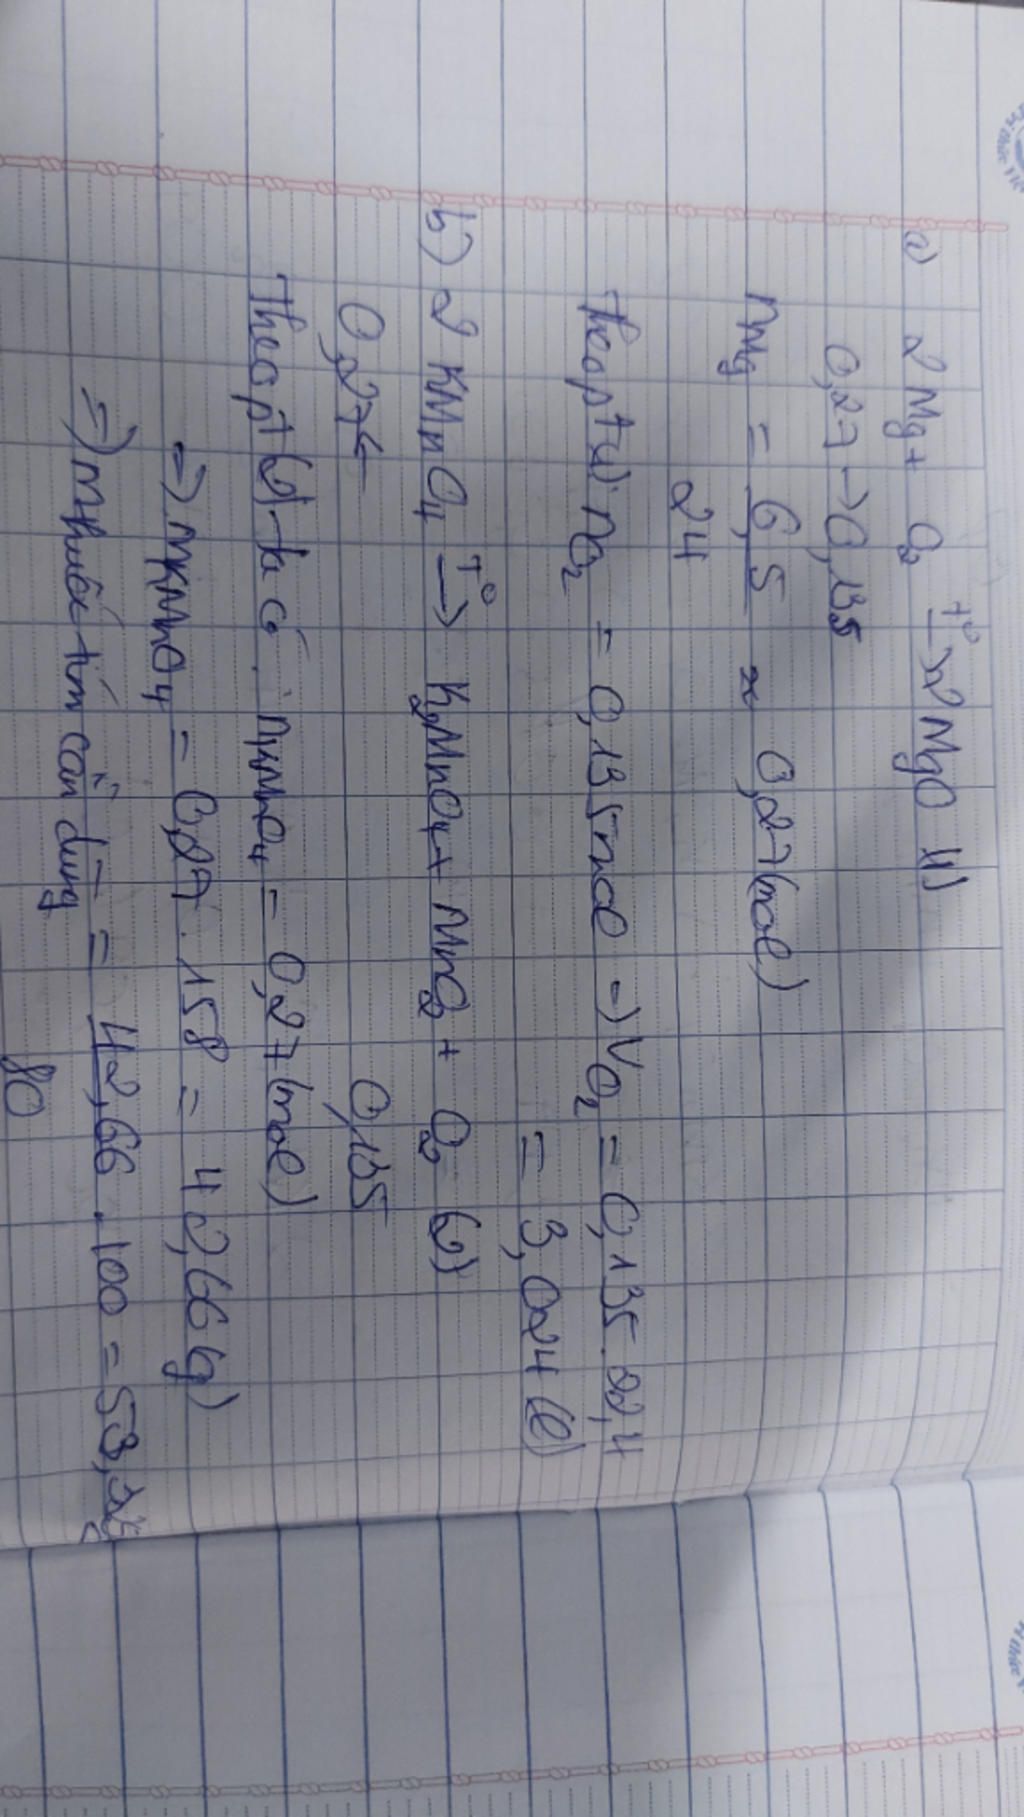 a) 2Mg + O2 t°→ 2MgO (1)
0,27 → 0,135
nMg = 6,5 / 24 ≈ 0,27 (mol)
Theo pt (1): nO2 = 0,135 mol → VO2 = 0,135.22,4
= 3,024 (l)
b) 2KMnO4 T°→ K2MnO4 + MnO2 + O2 (2)
0,27 ← 0,135
Theo pt (2) ta có: nKMnO4 = 0,27 (mol)
→ mKMnO4 = 0,27.158 = 42,66 (g)
⇒ mthuốc tím cần dùng = 42,66.100 / 80 = 53,325